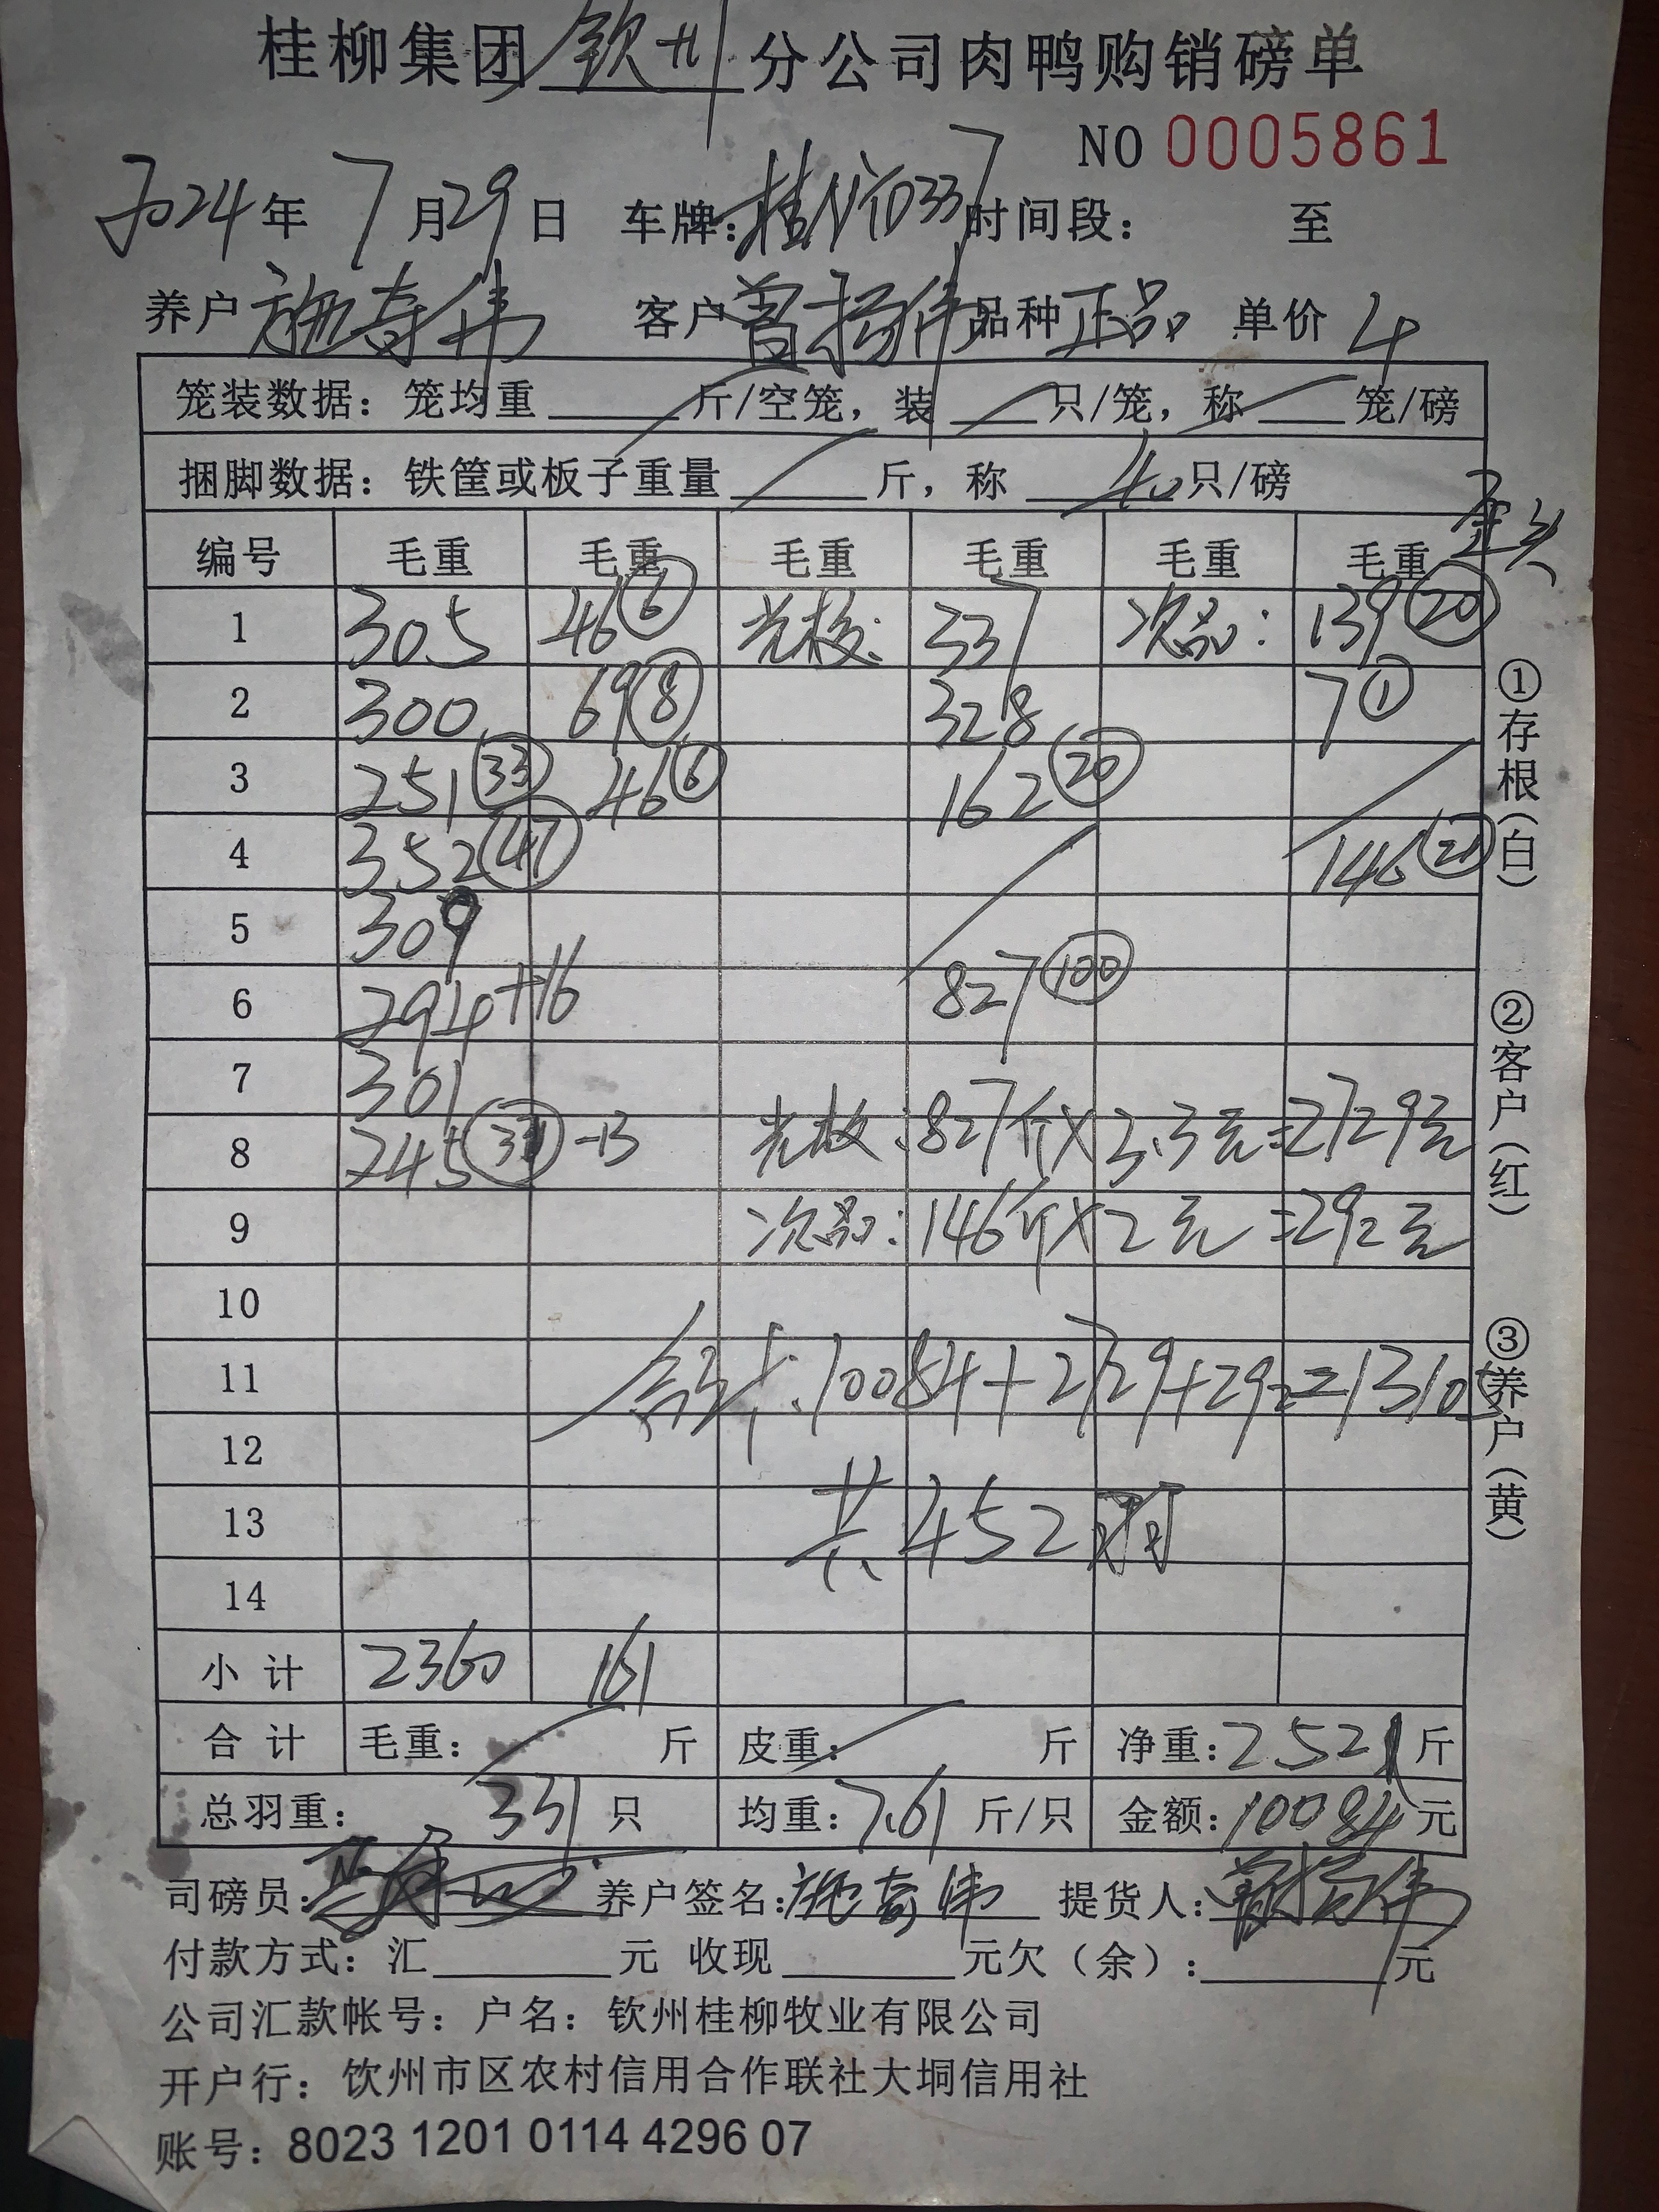 桂柳集团钦州分公司肉鸭购销磅单
NO 0005861
2024年7月29日 车牌: 时间段： 至
养户施寿伟 客户曾扬伟 品种正品 单价4
笼装数据：笼均重 斤/空笼，装 只/笼，称 笼/磅
捆脚数据：铁筐或板子重量 斤，称 40只/磅
编号 毛重 毛重 毛重 毛重 毛重 毛重
1 305 46⑥ 光板: 337 次品: 139⑳
2 300 69⑧ 328 7①
3 251(33) 46⑥ 162⑳
4 352(47) 146(21)
5 309
6 294+16 827(100)
7 301
8 245 -13 光板:827斤×3.3元=2729元
9 次品:146斤×2元=292元
10
11 合计:10084+2729+292=13105
12
13 共452羽
14
小计 2360 161
合计 毛重： 斤 皮重： 斤 净重：2521斤
总羽重： 331只 均重：7.61斤/只 金额：10084元
司磅员: 养户签名:施寿伟 提货人:曾扬伟
付款方式：汇 元 收现 元欠（余）: 元
公司汇款帐号：户名：钦州桂柳牧业有限公司
开户行：钦州市区农村信用合作联社大垌信用社
账号：8023 1201 0114 4296 07
①存根（白）
②客户（红）
③养户（黄）